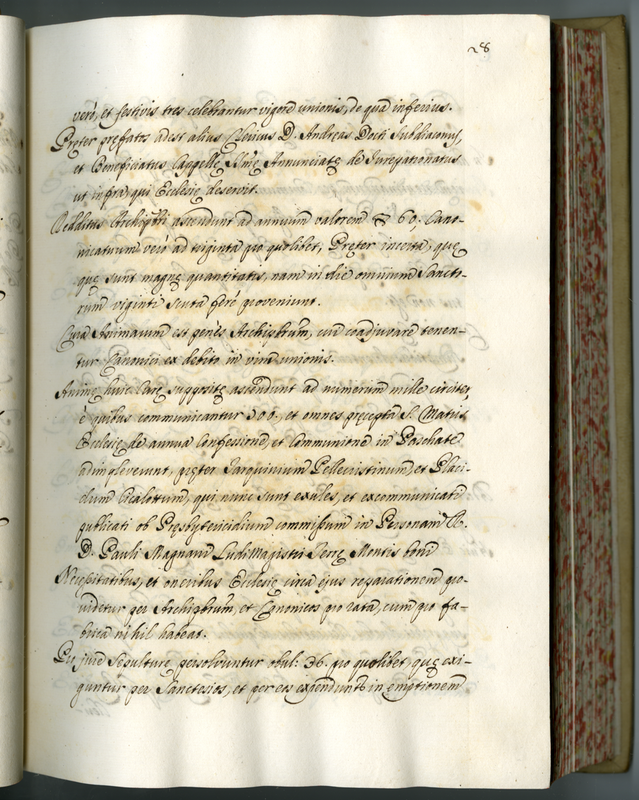 28
verò, et festivis tres celebrantur vigore unionis, de qua inferius.
Pręter pręfatos adest alius Clericus D. Andreas Doti Subdiaconus,
et Beneficiatus Cappellę SSmę Annunciatę de Jurepatronatus
ut infra, qui Ecclesię deservit.
Redditus Archipbri ascendunt ad annuum valorem 60, Cano-
nicatuum verò ad triginta pro quolibet, Pręter incerta, quę
quę sunt magnę quantitatis, nam in die omnium Sancto-
rum viginti scuta ferè proveniunt.
Cura Animarum est penès Archipbrum, cui coadjuvare tenen-
tur Canonici ex debito in vim unionis.
Animę huic Curę suppositę ascendunt ad numerum mille circiter,
è quibus communicantur 500, et omnes pręcepta S. Matris
Ecclesię de annua Confessione, et Communione in Paschate
adimpleverunt, pręter Tarquinium Pellecistinum, et Placi-
dum, qui nunc sunt exules, et excommunicati
publicati ob Pręsbytericidium commissum in Personam
D. Pauli Magnani LudiMagistri Terrę Montis boni
Necessitatibus, et oneribus Ecclesię circa ejus reparationem pro-
videtur per Archipbrum, et Canonicos pro rata, cum pro fa-
brica nihil habeat.
Pro jure Sepulturę persolvuntur obul: 36. pro quolibet, quę exi-
guntur per Sanctesios, et per eos expenduntr in emptionem